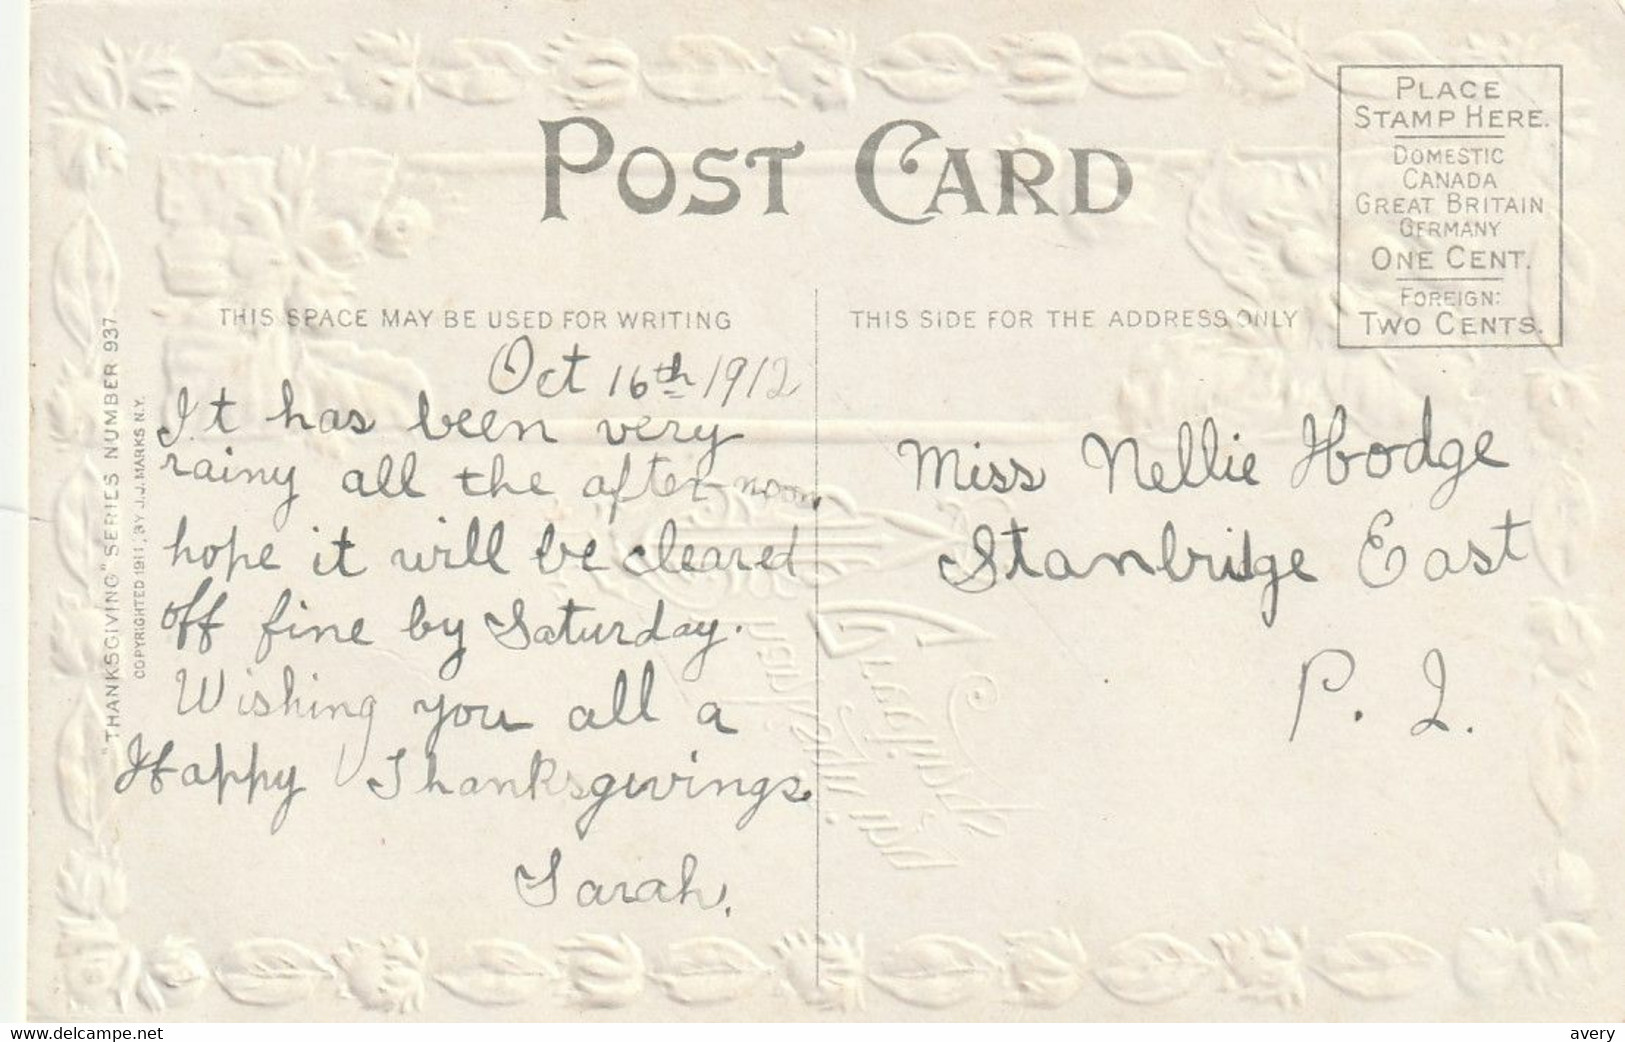 POST CARD
PLACE
STAMP HERE.
DOMESTIC
CANADA
GREAT BRITAIN
GERMANY
ONE CENT.
FOREIGN:
TWO CENTS.
THIS SPACE MAY BE USED FOR WRITING
THIS SIDE FOR THE ADDRESS ONLY
"THANKSGIVING" SERIES NUMBER 937.
COPYRIGHTED 1911, BY J.J. MARKS N.Y.
Oct 16th 1912
It has been very
rainy all the after-noon,
hope it will be cleared
off fine by Saturday.
Wishing you all a
Happy Thanksgivings.
Sarah.
Miss Nellie Hodge
Stanbridge East
P. Q.
www.delcampe.net
avery